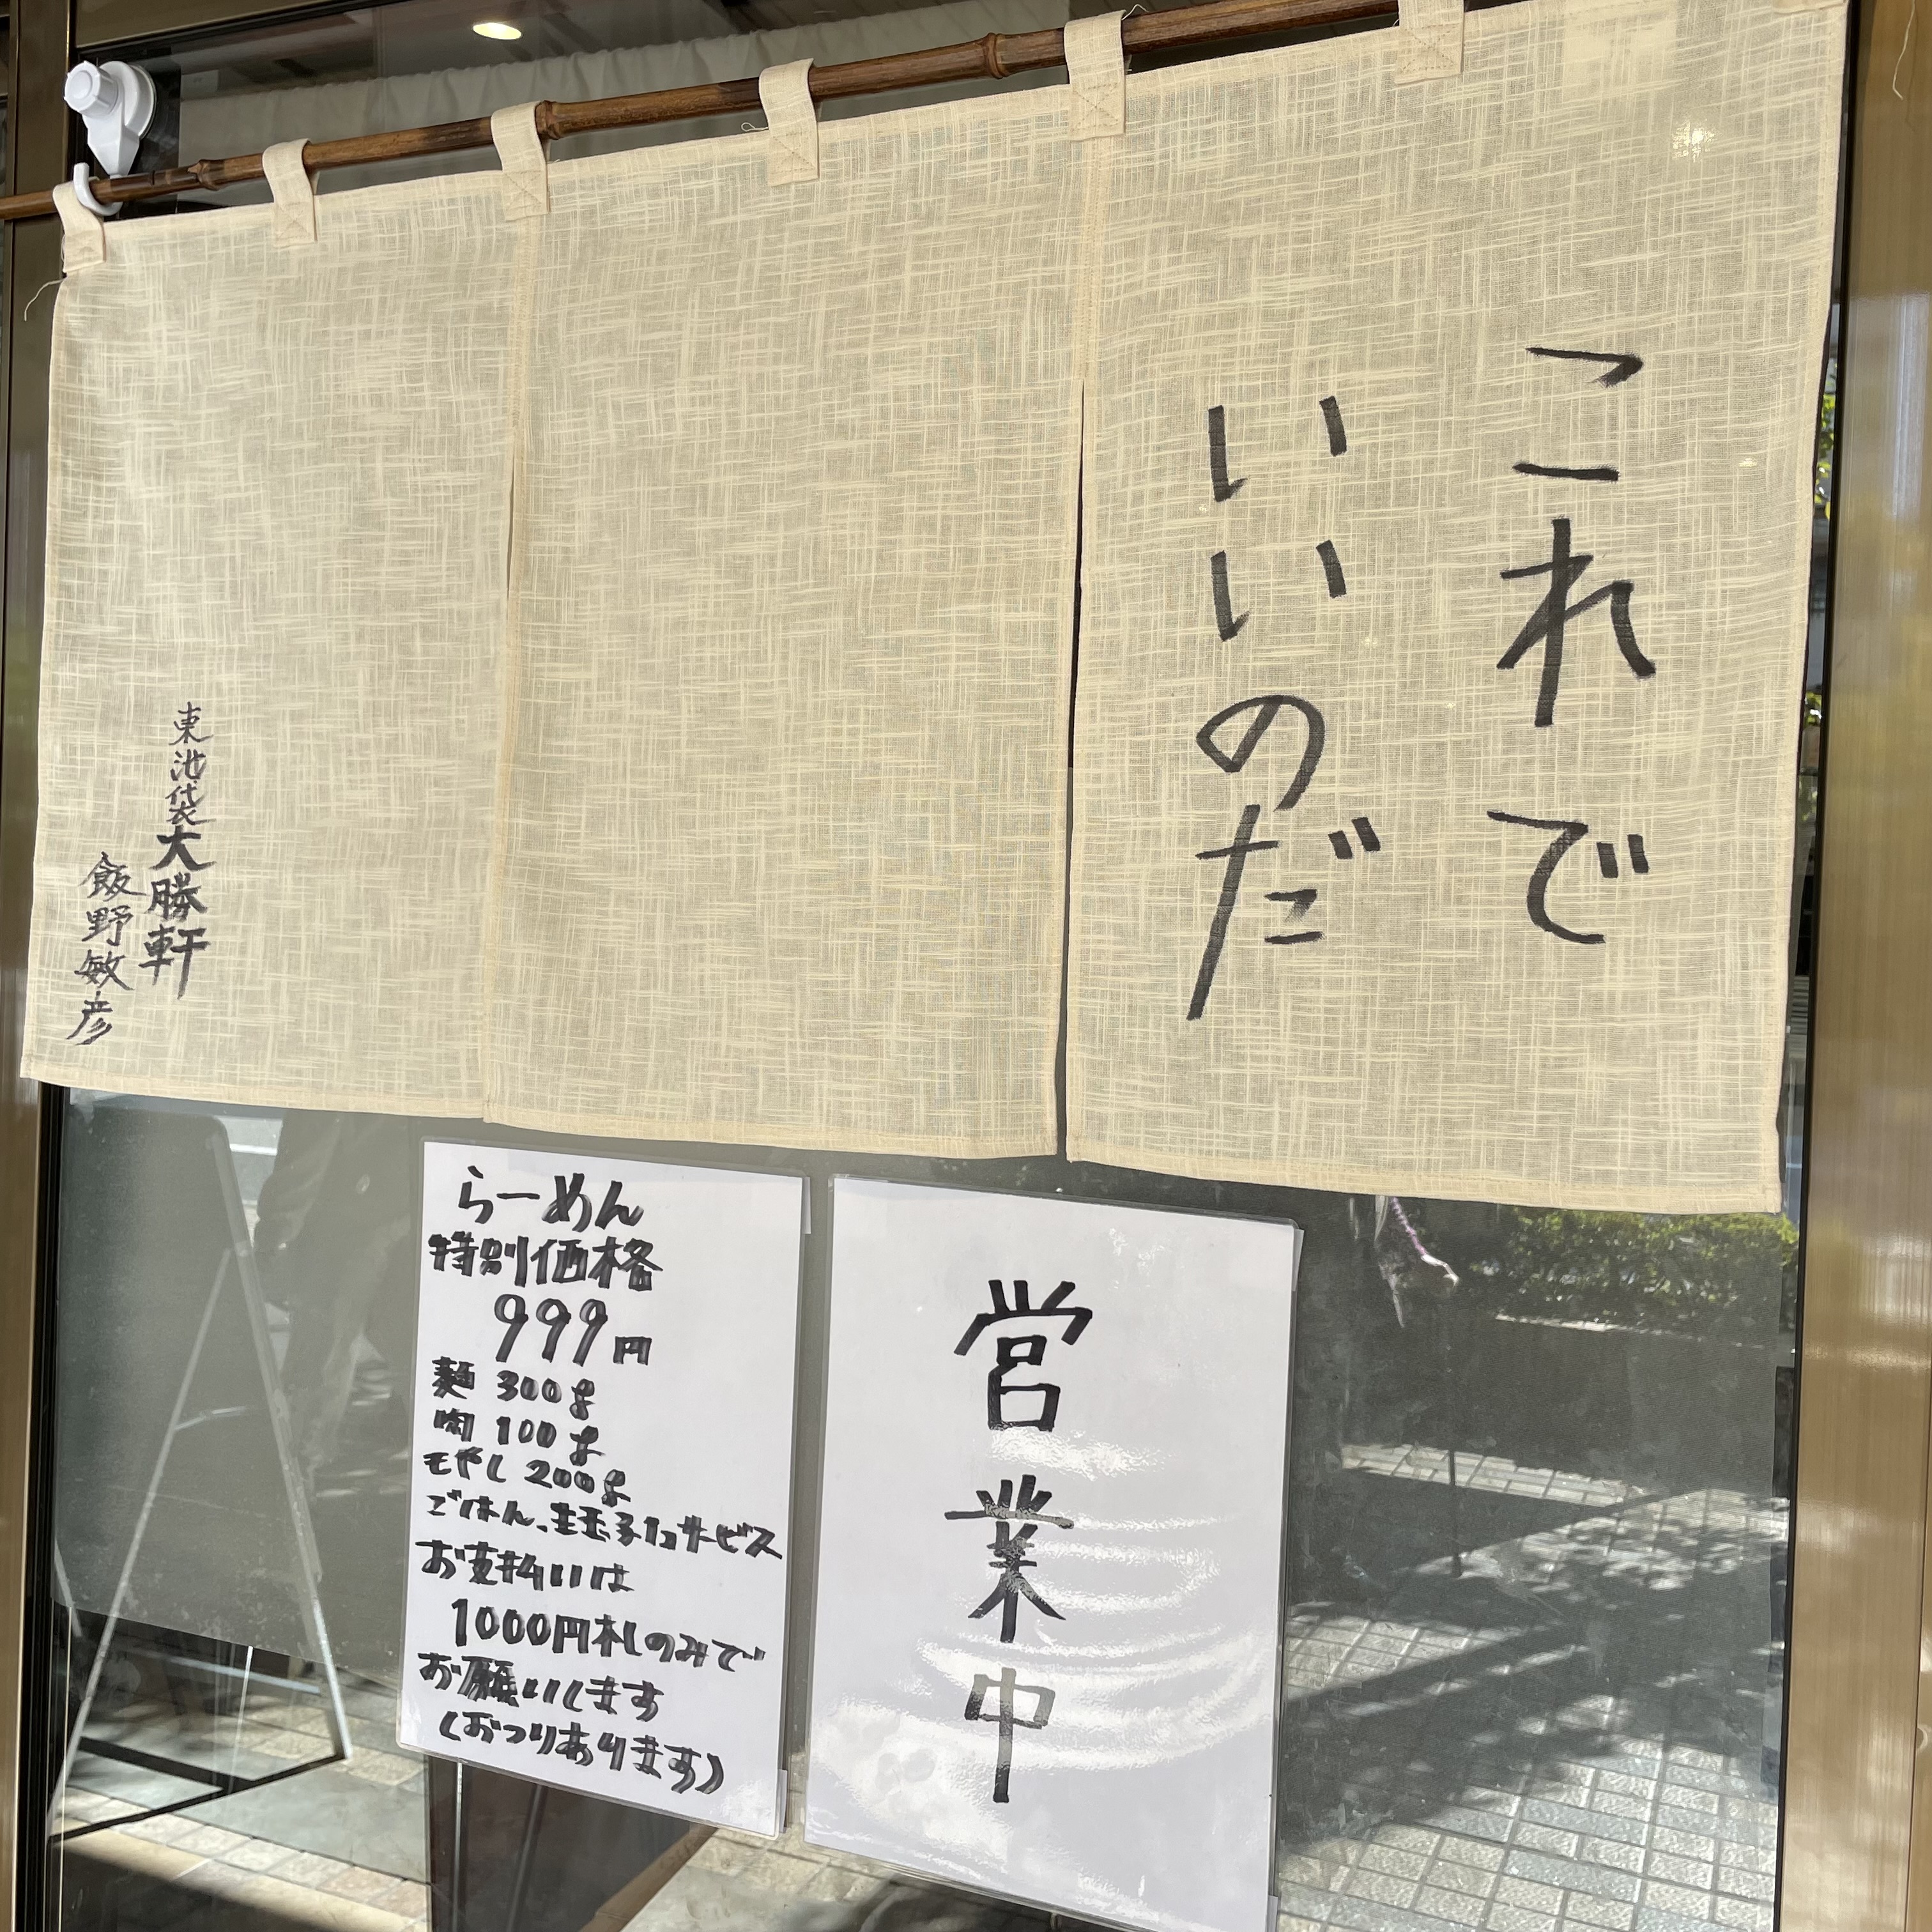 これで
いいのだ
東池袋大勝軒
飯野敏彦
らーめん
特別価格
999円
麺 300g
肉 100g
モやし 200g
ごはん、生玉子1コサービス
お支払いは
1000円札のみで
お願いします
(おつりあります)
営業中